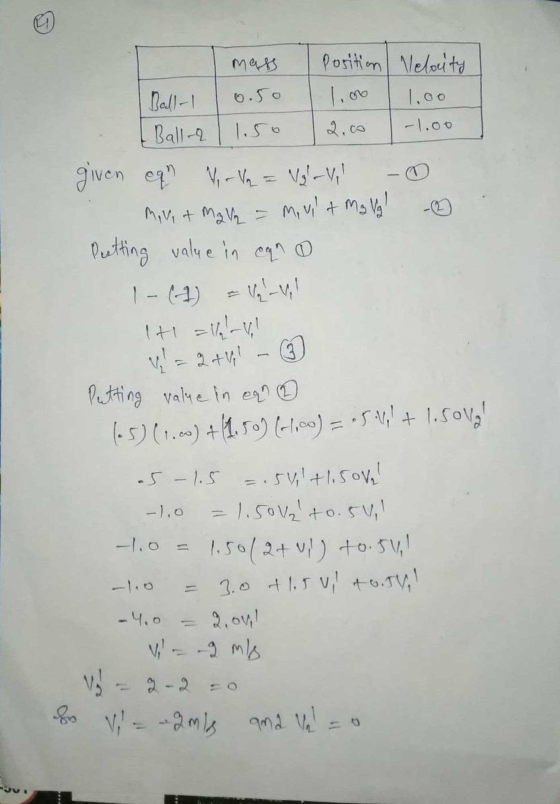 ④
mass Position Velocity
Ball-1 0.50 1.00 1.00
Ball-2 1.50 2.00 -1.00
given eqn V₁-V₂ = V₂'-V₁' - ①
m₁v₁ + m₂v₂ = m₁v₁' + m₂v₂' - ②
Putting value in eqn ①
1 - (-1) = V₂'-V₁'
1+1 = V₂'-V₁'
V₂' = 2+V₁' - ③
Putting value in eqn ②
(.5)(1.00) + (1.50)(-1.00) = .5V₁' + 1.50V₂'
.5 - 1.5 = .5V₁' + 1.50V₂'
-1.0 = 1.50V₂' + 0.5V₁'
-1.0 = 1.50(2+V₁') + 0.5V₁'
-1.0 = 3.0 + 1.5V₁' + 0.5V₁'
-4.0 = 2.0V₁'
V₁' = -2 m/s
V₂' = 2-2 = 0
So V₁' = -2m/s and V₂' = 0